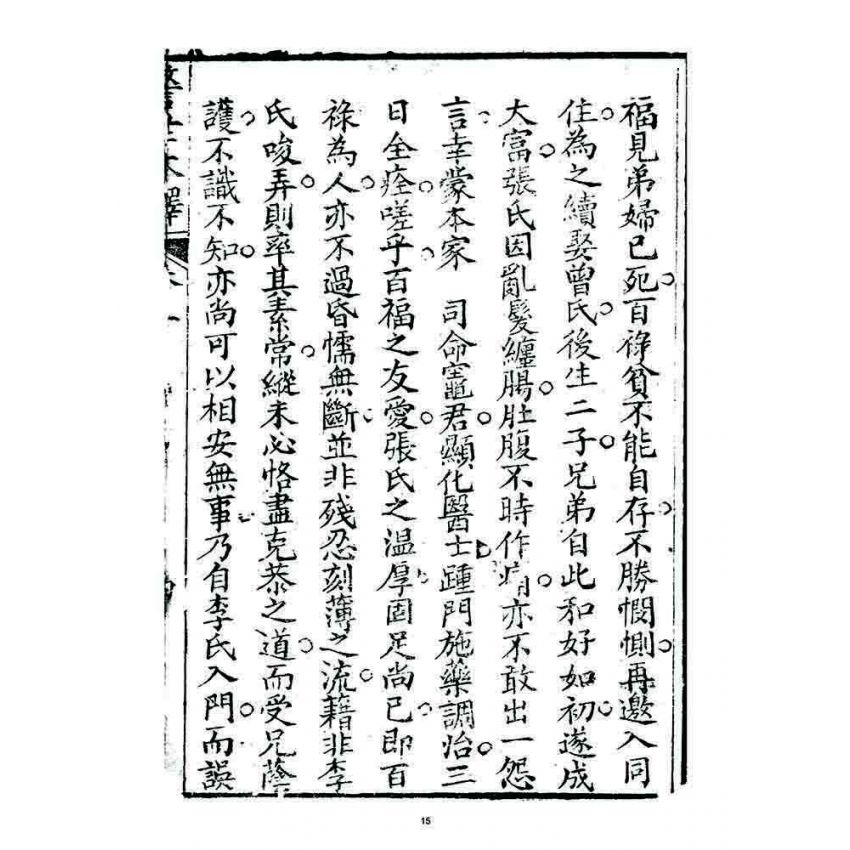 福見弟婦已死。百祿貧不能自存。不勝憫惻。再邀入同
住。為之續娶曾氏。後生二子。兄弟自此和好如初。遂成
大富。張氏因亂髮纏腸。肚腹不時作痛。亦不敢出一怨
言。幸蒙本家 司命竈君。顯化醫士。踵門施藥調治。三
日全痊。嗟乎。百福之友愛。張氏之温厚。固足尚已。即百
祿為人。亦不過昏懦無斷。並非殘忍刻薄之流。藉非李
氏唆弄。則率其素常。縱未必恪盡克恭之道。而受兄蔭
護。不識不知。亦尚可以相安無事。乃自李氏入門。而誤
15